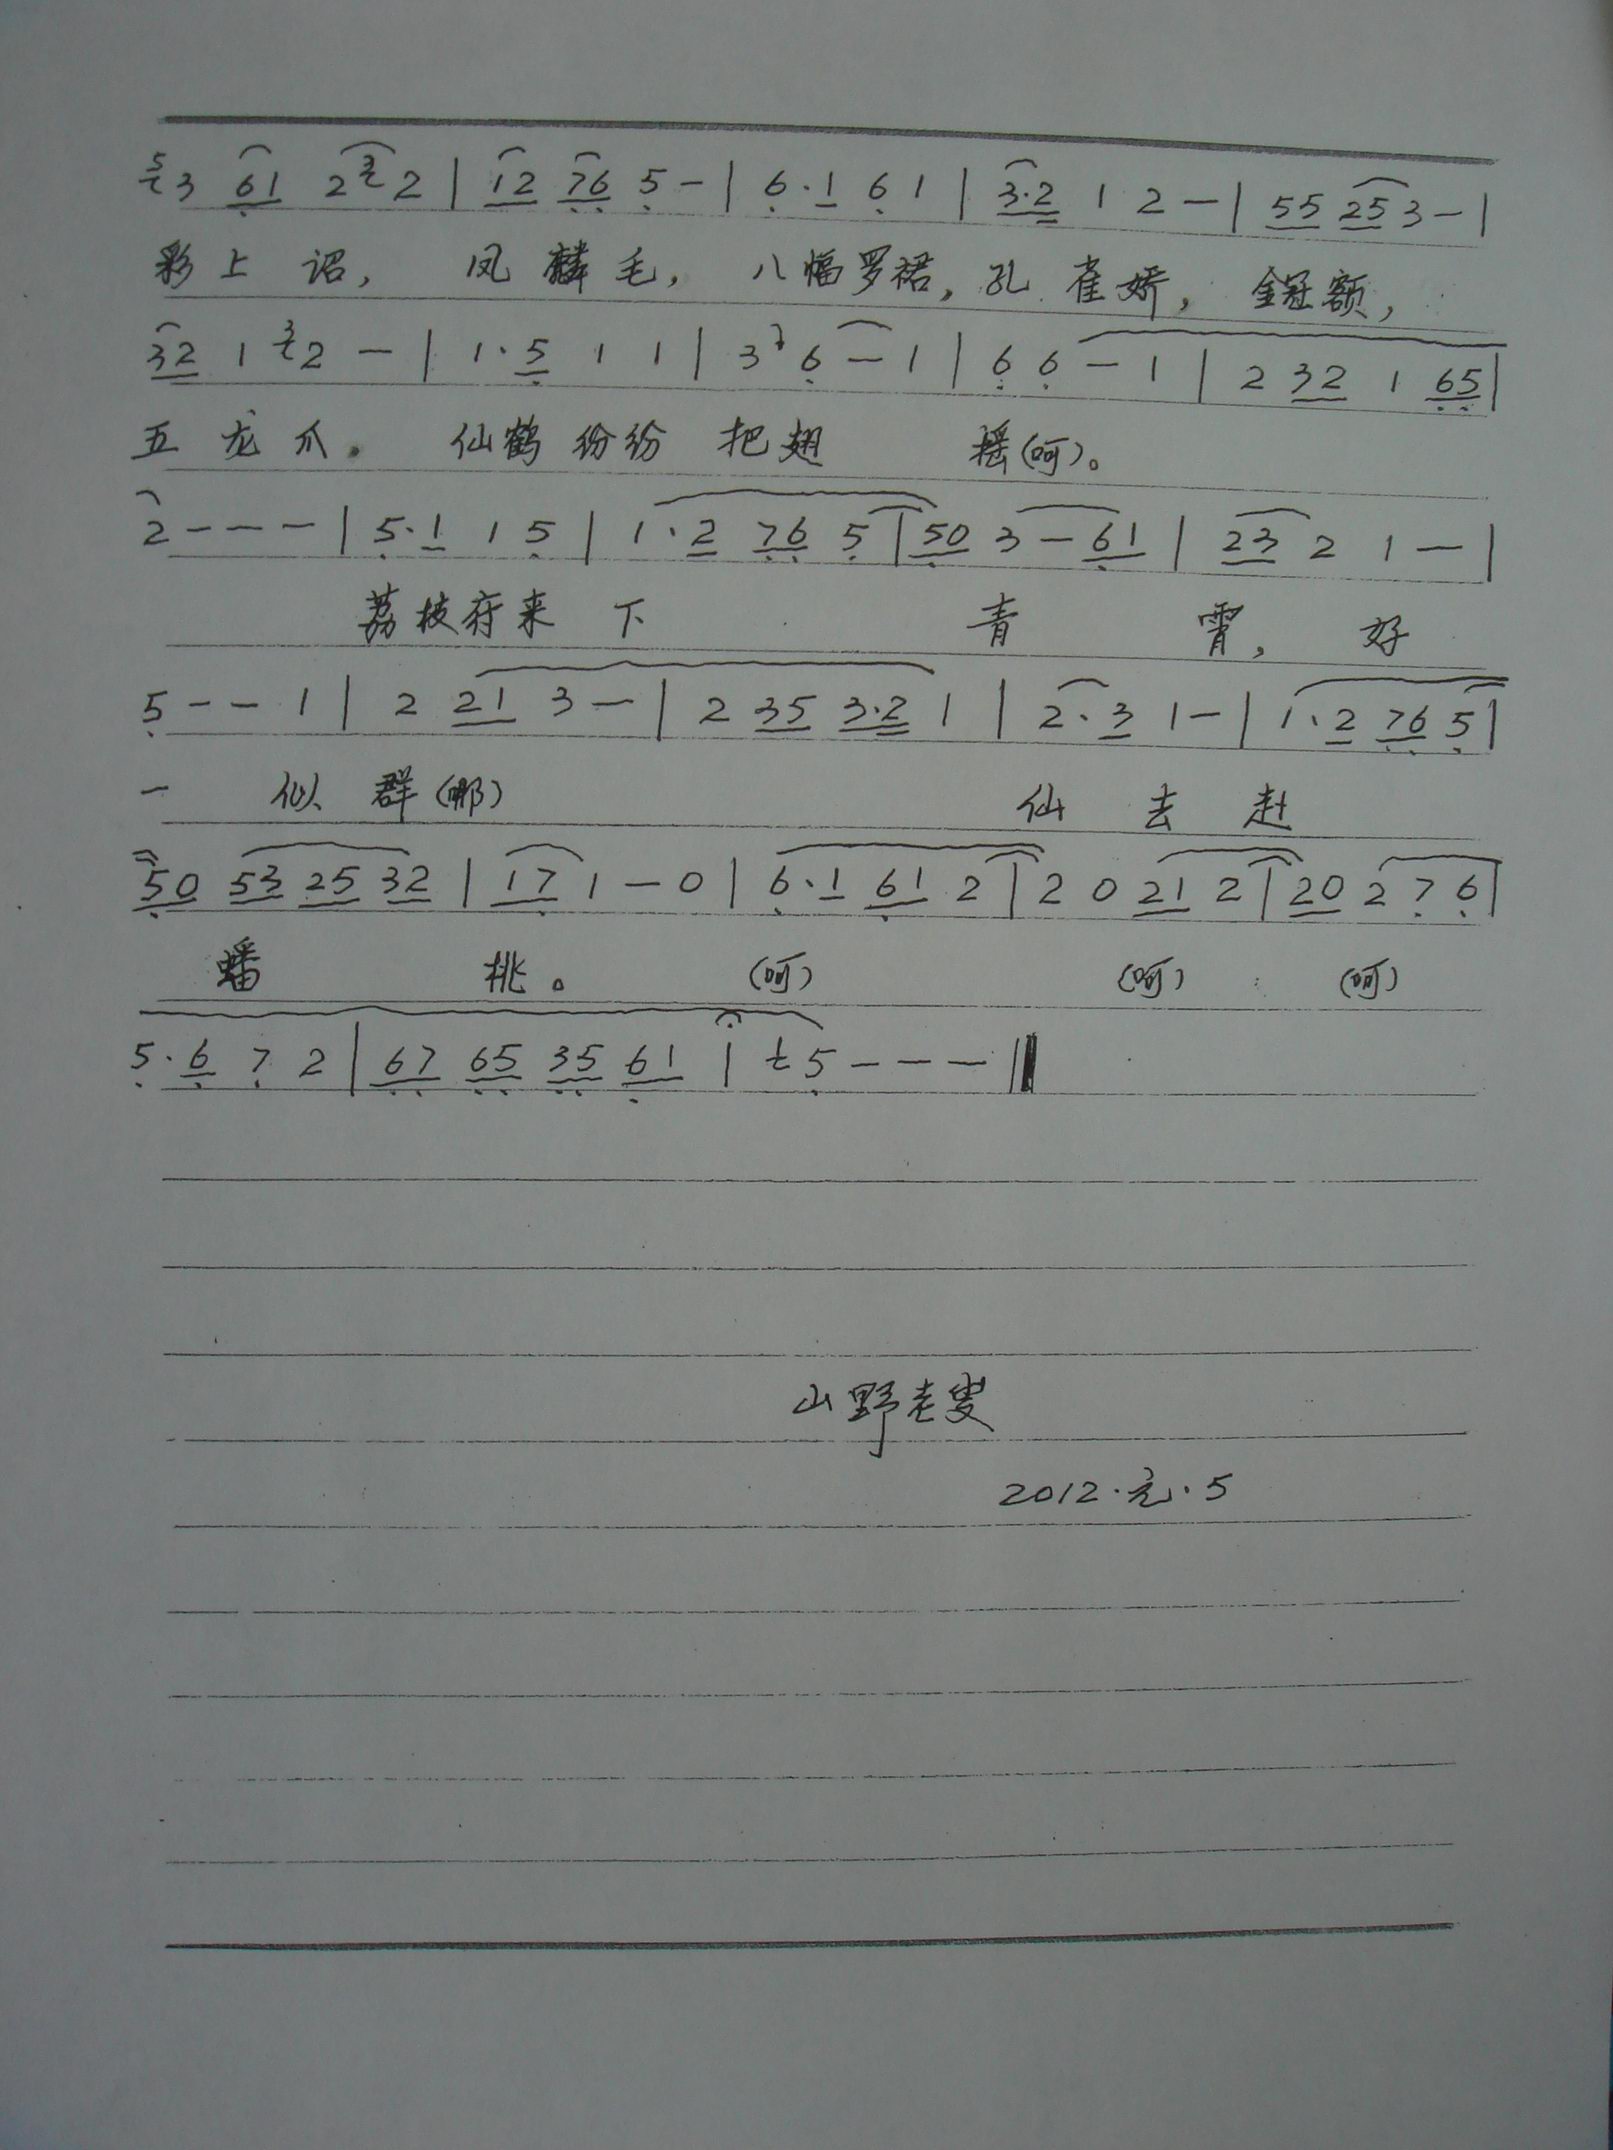 5 3 61 2 3 2 | 12 76 5 - | 6·1 6 1 | 3·2 1 2 - | 55 25 3 - |
彩上诏，凤麟毛，八幅罗裙，孔雀娇，金冠额，
32 1 3 2 - | 1·5 1 1 | 3 6 - 1 | 6 6 - 1 | 2 32 1 65 |
五龙爪。仙鹤纷纷把翅摇(呵)。
2 - - - | 5·1 1 5 | 1·2 76 5 | 50 3 - 61 | 23 2 1 - |
荔枝府来下青霄，好
5 - - 1 | 2 21 3 - | 2 35 3·2 1 | 2·3 1 - | 1·2 76 5 |
一似群(哪)仙去赴
50 53 25 32 | 17 1 - 0 | 6·1 61 2 | 2 0 21 2 | 20 2 7 6 |
蟠桃。(呵)(呵)(呵)
5·6 7 2 | 67 65 35 61 | 5 - - - ‖
山野老叟
2012·元·5